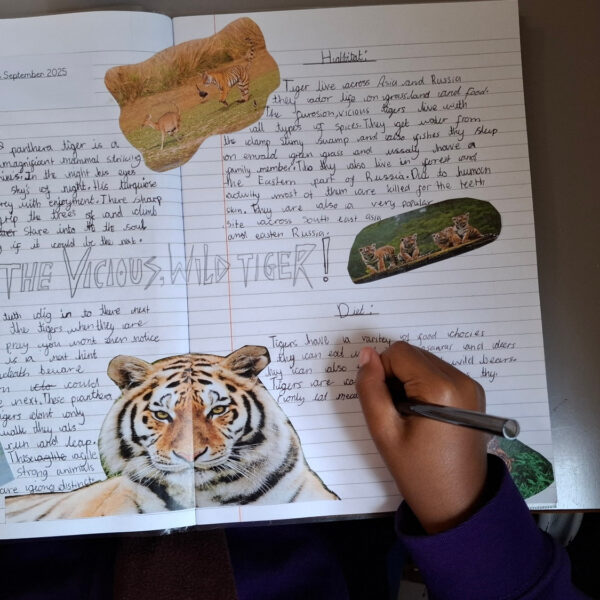 September 2025
panthera tiger is a
magnificant mammal striking
the night his eyes
of night. His turquise
with enjoyment. There sharp
grip the trees of and climb
stare into the soul
if it could be the
THE VICIOUS, WILD TIGER!
dig in to there next
the tigers when they are
pray you wont even notice
is a hint
beware
could
next. These panthera
tigers dont only
walk they als
run and leap.
These agile
strong animals
are distinct
Habitat:
Tiger live across Asia and Russia
they ador life on grassland and food.
The furosion, vicious tigers live with
all types of spices. They get water from
the slimy swamp and also fishes they sleep
on emrald green grass and usally have a
family member. Tho they also live in forrest and
the Eastern part of Russia. Due to human
activity most of them are killed for the teeth
skin. They are also a very popular
site across South east asia
and eastern Russia.
Diet:
Tigers have a variety of food chocies
they can eat and deers
they can also wild bears.
Tigers are they
only eat